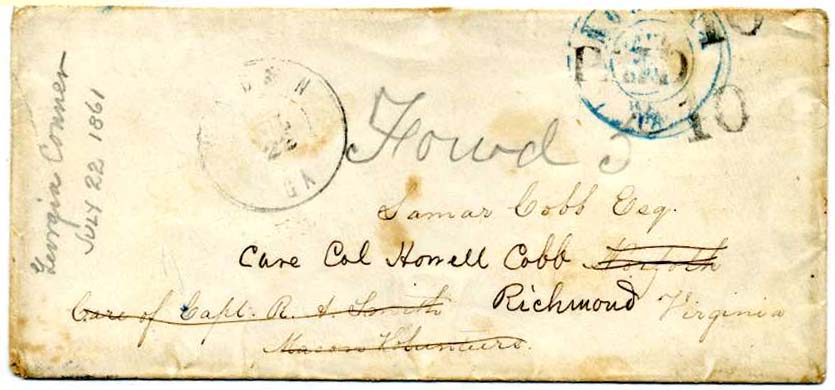 Georgia Conner
JULY 22 1861
PAID
10
10
Forwd 5
Lamar Cobb Esq.
Care Col Howell Cobb Norfolk
Care of Capt. R. A. Smith Richmond Virginia
Macon Volunteers.